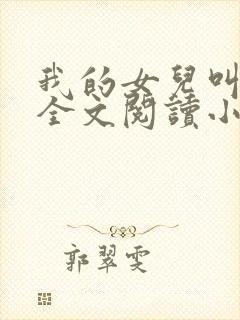 我的女兒叫
全文閱讀小
郭翠雯